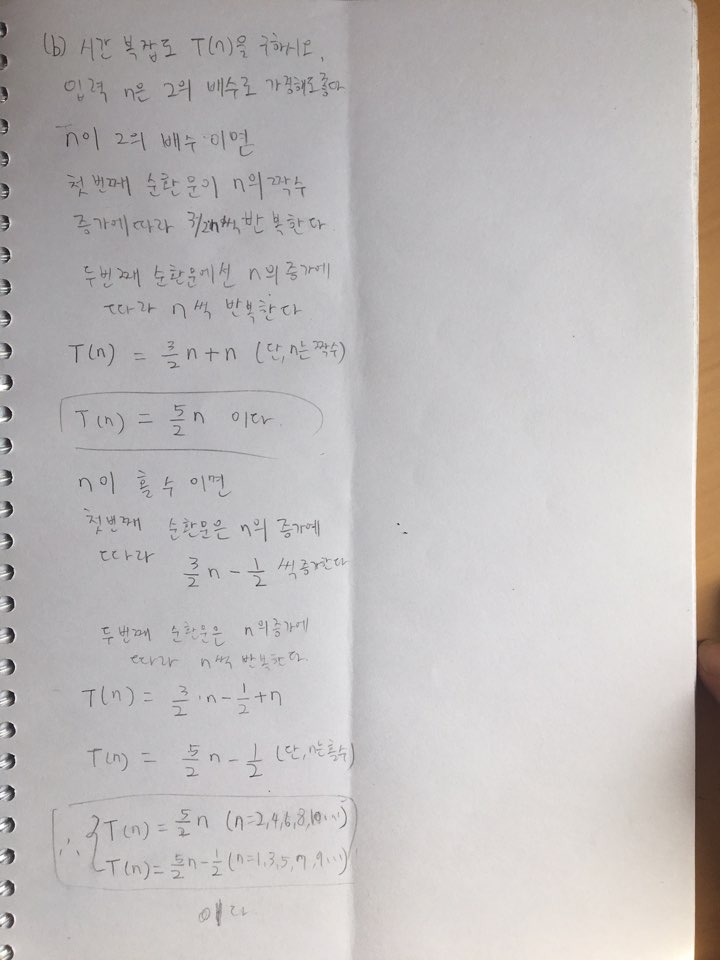 (b) 시간 복잡도 T(n)을 구하시오,
입력 n은 2의 배수로 가정해도좋다
n이 2의 배수 이면
첫번째 순환문이 n의 짝수
증가에따라 3/2n씩 반복한다.
두번째 순환문에선 n의 증가에
따라 n씩 반복한다
T(n) = 3/2 n + n (단, n는 짝수)
T(n) = 5/2 n 이다.
n이 홀수 이면
첫번째 순환문은 n의 증가에
따라 3/2 n - 1/2 씩증가한다
두번째 순환문은 n의증가에
따라 n씩 반복한다.
T(n) = 3/2 ·n - 1/2 + n
T(n) = 5/2 n - 1/2 (단, n는홀수)
∴ { T(n) = 5/2 n (n=2,4,6,8,10...)
T(n) = 5/2 n - 1/2 (n=1,3,5,7,9...)
이다